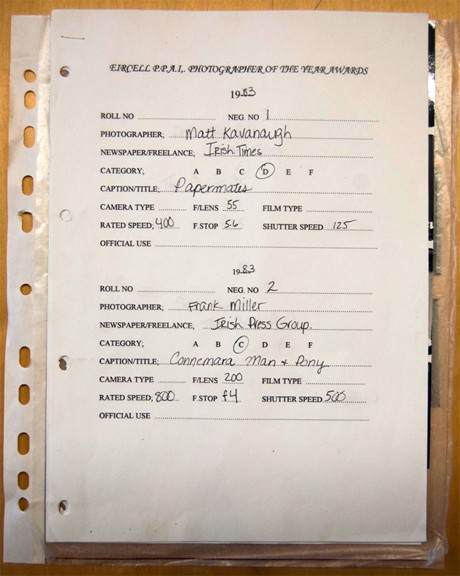 EIRCELL P.P.A.I,. PHOTOGRAPHER OF THE YEAR AWARDS
1983
ROLL NO NEG. NO 1
PHOTOGRAPHER; Matt Kavanaugh
NEWSPAPER/FREELANCE; Irish Times
CATEGORY; A B C D E F
CAPTION/TITLE; Papermates
CAMERA TYPE F/LENS 55 FILM TYPE
RATED SPEED; 400 F.STOP 5.6 SHUTTER SPEED 125
OFFICIAL USE
1983
ROLL NO NEG. NO 2
PHOTOGRAPHER; Frank Miller
NEWSPAPER/FREELANCE; Irish Press Group.
CATEGORY; A B C D E F
CAPTION/TITLE; Connemara Man + Pony
CAMERA TYPE F/LENS 200 FILM TYPE
RATED SPEED; 800 F.STOP f4 SHUTTER SPEED 500
OFFICIAL USE